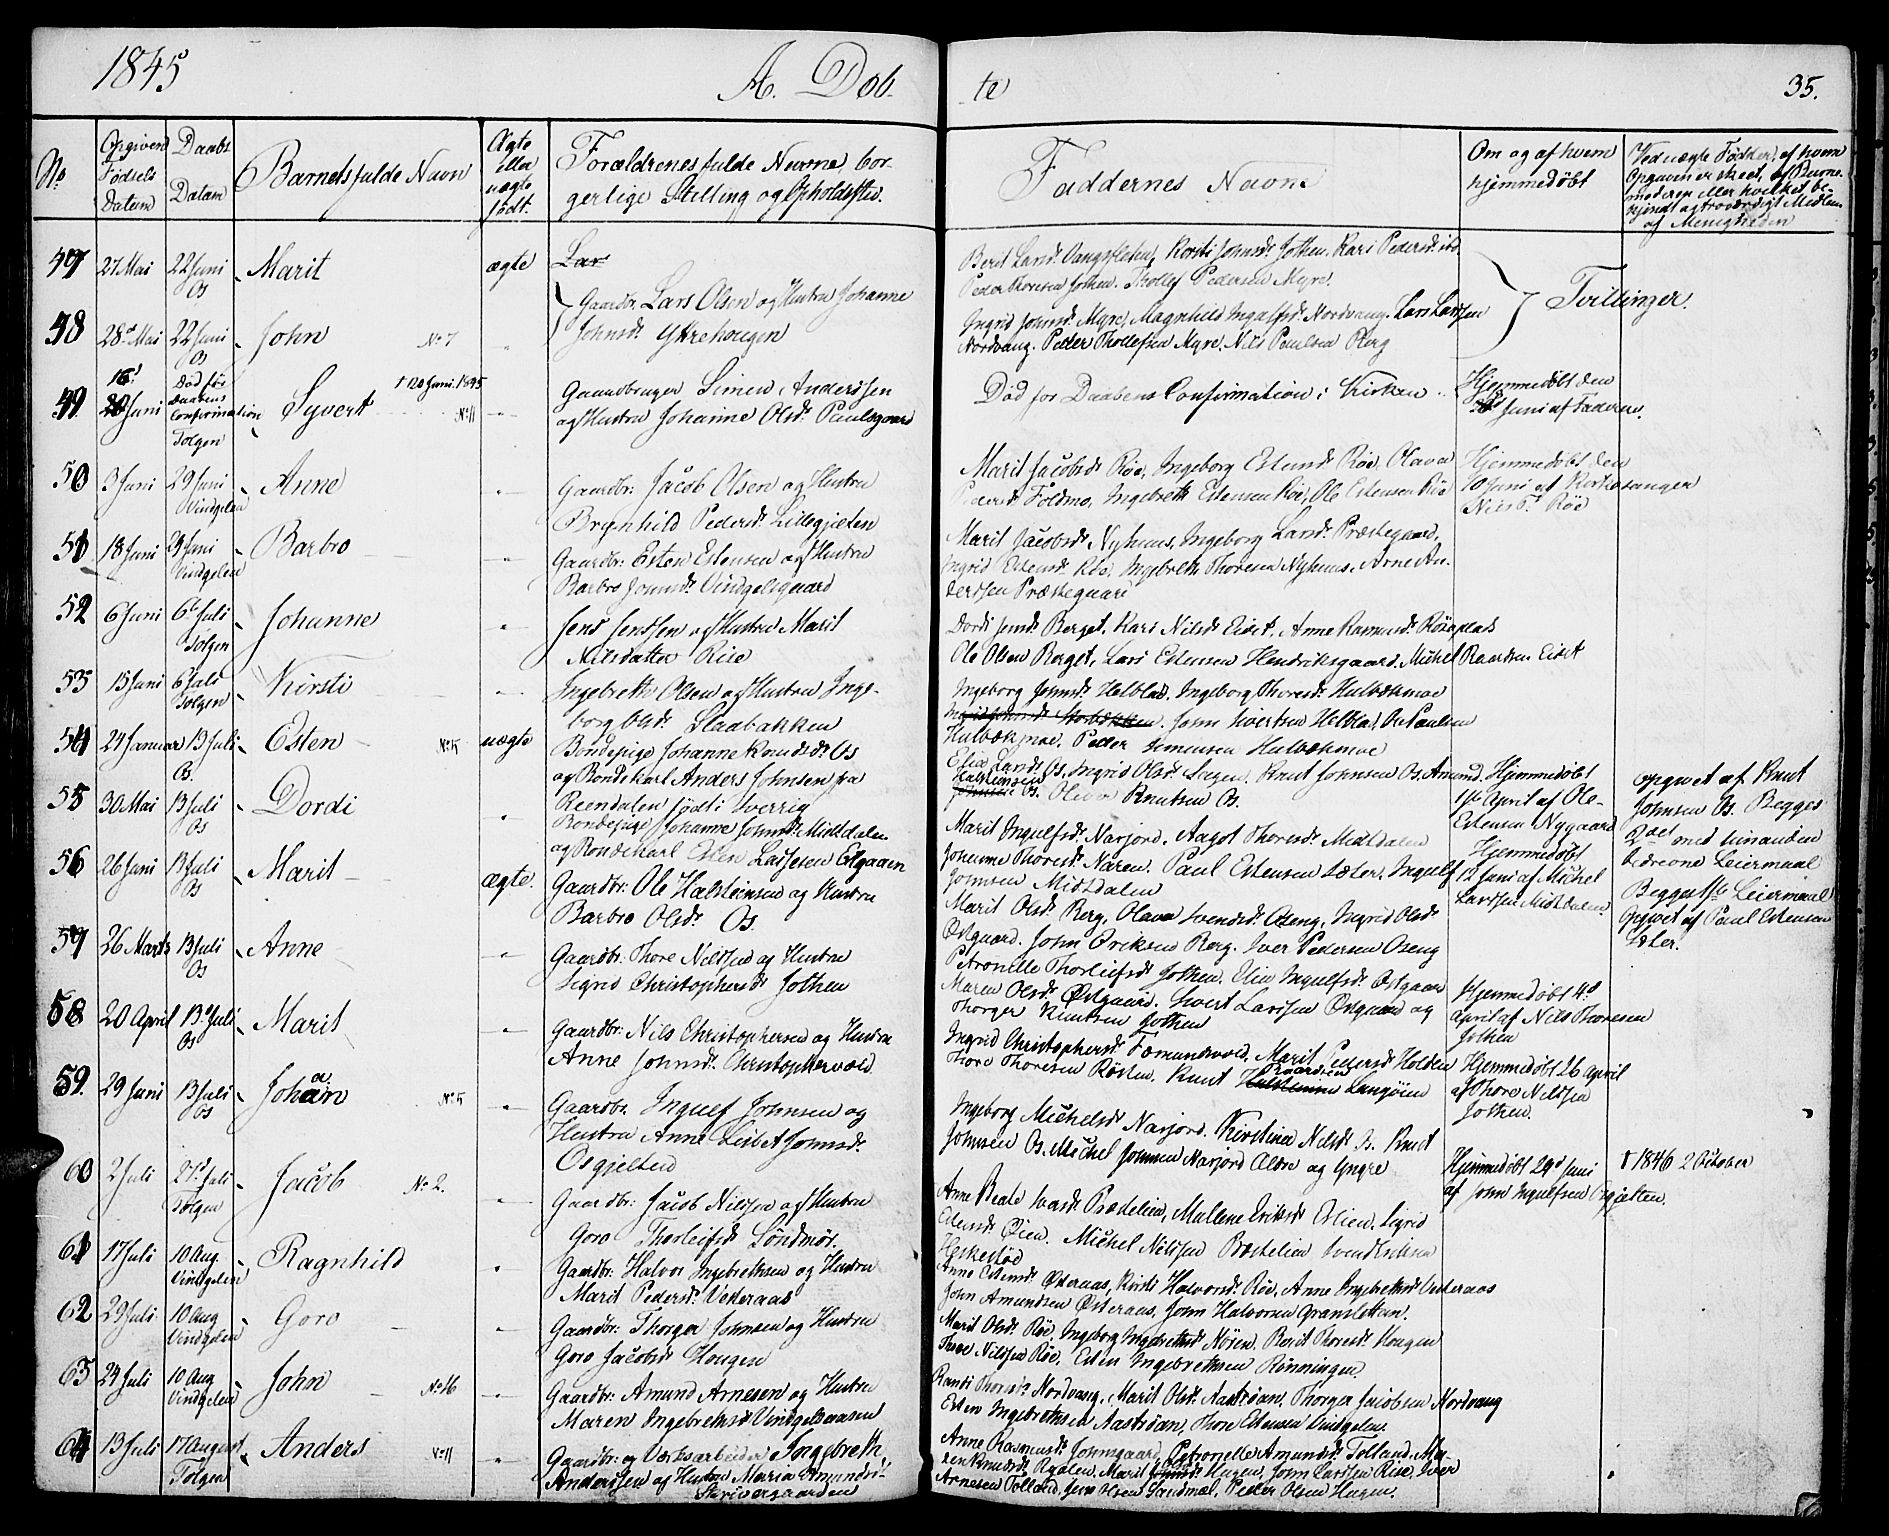 1845
A. Døb-
-te
35.
No
Opgiven Fødsels Datum
Daabs Datum
Barnets fulde Navn
Ægte eller uægte født.
Forældrenes fulde Navne, bor-
gerlige Stilling og Opholdssted.
Faddernes Navne
Om og af hvem
hjemmedøbt
Ved uægte Fødsler, af hvem
Opgaven er skeet, af Barne-
moderen eller hvilket be-
kjendt og troværdigt Medlem
af Menigheden
47 27 Mai 22 Juni Os Marit ægte
Lar
Gaardbr. Lars Olsen og Hustru Johanne
Johnsd. Ytterhougen
Berit Larsd. Vangsfleten, Kirsti Johnsd. Jothen, Kari Pedersd. ibd.
Peder Thoresen Jothen. Thollef Pedersen Myre.
48 28d Mai 22 Juni Os John No 7 "
Ingrid Johnsd. Myre, Magnhild Ingulfsd. Nordvang. Lars Larssen
Nordvang. Peder Thollefsen Myre. Nils Paulsen Berg
Tvillinger.
49 16d Juni Død før Daabens Confirmation Tolgen Syvert † 20 Juni 1845 No 11 "
Gaardbruger Simen Anderssen
og Hustru Johanne Olsd. Paulsgaard
Død før Daabens Confirmation i Kirken.
Hjemmedøbt den
Juni af Faderen.
50 3 Juni 29 Juni Vindgelen Anne "
Gaardbr: Jacob Olsen og Hustru
Brynhild Pedersd. Lillegjelten
Marit Jacobsd. Røe, Ingeborg Estensd. Røe, Olava
Pedersd. Foldmo, Ingebreth Estensen Røe, Ole Estensen Røe
Hjemmedøbt den
10 Juni af Kirkesanger
Nils Røe
51 18 Juni 29 Juni Vindgelen Barbro "
Gaardbr: Esten Estensen og Hustru
Barbro Jonsd. Vindgelsgaard
Marit Jacobsd. Nyhuus, Ingeborg Larsd. Præstegaard,
Ingrid Estensd. Røe, Ingebreth Thoresen Nyhuus, Arne An-
derssen Præstegaard
52 6 Juni 6te Juli Tolgen Johanne "
Jens Jenssen og Hustru Marit
Nilsdatter Rise
Dordi Jensd. Berget, Kari Nilsd. Eidet, Anne Rasmusd. Røseplads
Ole Olsen Berget, Lars Estensen Hendriksgaard, Michel Baardsen Eidet
53 15 Juni 6 Juli Tolgen Kirsti "
Ingebreth Olsen og Hustru Inge-
borg Olsd. Staabakken
Ingeborg Johnsd. Holblad, Ingeborg Thoresd. Hulbækmoe
Hulbækmoe, Peder Simensen Hulbækmoe
54 24 Januar 13 Juli Os. Esten No 5 uægte
Bondepige Johanne Knudsd. Os
og Bondekarl Anders Johnsen fra
Reendalen født i Sverrig
Elie Larsd. Os, Ingrid Olsd. Søgen, Knut Johnsen Os, Amund
Halsteinsen Os. Ole Knutsen Os.
Hjemmedøbt
1ste April af Ole
Estensen Nygaard
opgivet af Knut
Johnsen Os. Begges
2det med hinanden
bedrevne Leiermaal
55 30 Mai 13 Juli Os Dordi "
Bondepige Johanne Johnsd. Midtdalen
og Bondekarl Esten Larssen Estgaarn
Marit Ingulfsd. Narjord. Aagot Thoresd. Midtdalen
Johanne Thoresd. Næren, Paul Estensen Sæter, Ingulf
Johnsen Midtdalen
Hjemmedøbt
12 Juni af Michel
Larssen Midtdalen
Begges 1ste Leiermaal
Opgivet af Paul Estensen
Sæter.
56 26 Juni 13 Juli Os Marit ægte.
Gaardbr: Ole Halsteinsen og Hustru
Barbro Olsd. Os.
Marit Olsd. Berg, Olava Svendsd. Oseng, Ingrid Olsd.
Østgaard. John Eriksen Berg. Iver Pedersen Oseng
57 26 Marts 13 Juli Os Anne "
Gaardbr: Thore Nilssen og Hustru
Sigrid Christophersd. Jothen
Petronelle Thorleifsd. Jothen, Elie Ingulfsd. Østgaard
Maren Olsd. Østgaard. Sivert Larssen Østgaard og
Thorger Knutsen Jothen
Hjemmedøbt 4d
April af Nils Thoresen
Jothen
58 20 April 13 Juli Os Marit "
Gaardbr: Nils Christophersen og Hustru
Anne Johnsd. Christophervold
Ingrid Christophersd. Fæmundsvold, Marit Pedersd. Holden
Thore Thoresen Røsten, Knut Halsteinsen Baardsen Langøien
Hjemmedøbt 26 April
af Thore Nilssen
Jothen.
59. 29 Juni 13 Juli Os Johan No 5 "
Gaardbr. Ingulf Johnsen og
Hustru Anne Lisbet Johnsd.
Osgjelten
Ingeborg Michelsd. Narjord, Kirstina Nilsd. Os. Knut
Johnsen Os. Michel Johnsen Narjord Ældre og Yngre
Hjemmedøbt 29d Juni
af John Ingulfsen Osgjelten.
† 1846 2 October
60 2 Juli 27d Juli Tolgen Jacob No 2. "
Gaardbr: Jacob Nilssen og Hustru
Goro Thorleifsd. Søndmør.
Anne Beate Ivarsd. Brædelien, Mallene Eriksd. Estien, Sigrid
Estensd. Øien. Michel Nilssen Bredelien Svend Eriksen
61 17 Juli 10 Aug. Vindgelen Ragnhild "
Gaardbr: Halvor Ingebrethsen og Hustru
Marit Pedersd. Vesteraas
Anne Estensd. Østeraas, Kirsti Halvorsd. Røe, Anne Ingebrethsd. Vesteraas
John Amundsen Østeraas, John Halvorsen Granslettun.
62 29 Juli 10 Aug Vindgelen Goro "
Gaardbr: Thorger Johnsen og Hustru
Goro Jacobsd. Hougen
Marit Olsd. Røe, Ingeborg Ingebrethsd. Moren, Berit Thoresd. Hougen
Thore Nilssen Røe, Esten Ingebrethsen Rønningen
63 24 Juli 10 Aug Vindgelen John No 16 "
Gaardbr: Amund Arnesen og Hustru
Maren Ingebrethsd. Vindgelsaasen
Randi Thoresd. Nordvang, Marit Olsd. Aastrøan, Thorger Jacobsen Nordvang
Esten Ingebrethsen Aastrøan, Thore Estensen Vindgelen
64 13 Juli 17 August Tolgen Anders No 11 "
Gaardbr. og Værksarbeider Ingebreth
Anderssen og Hustru Maria Amundsd.
Skrivergaarden
Anne Rasmusd. Jonsgaard, Petronelle Amundsd. Tolland, Ma-
ren Knudsd. Rydlen, Marit Hagen, John Larssen Rise, Iver
Arnesen Tolland, Jens Olsen Sandmæl, Peder Olsen Hagen.